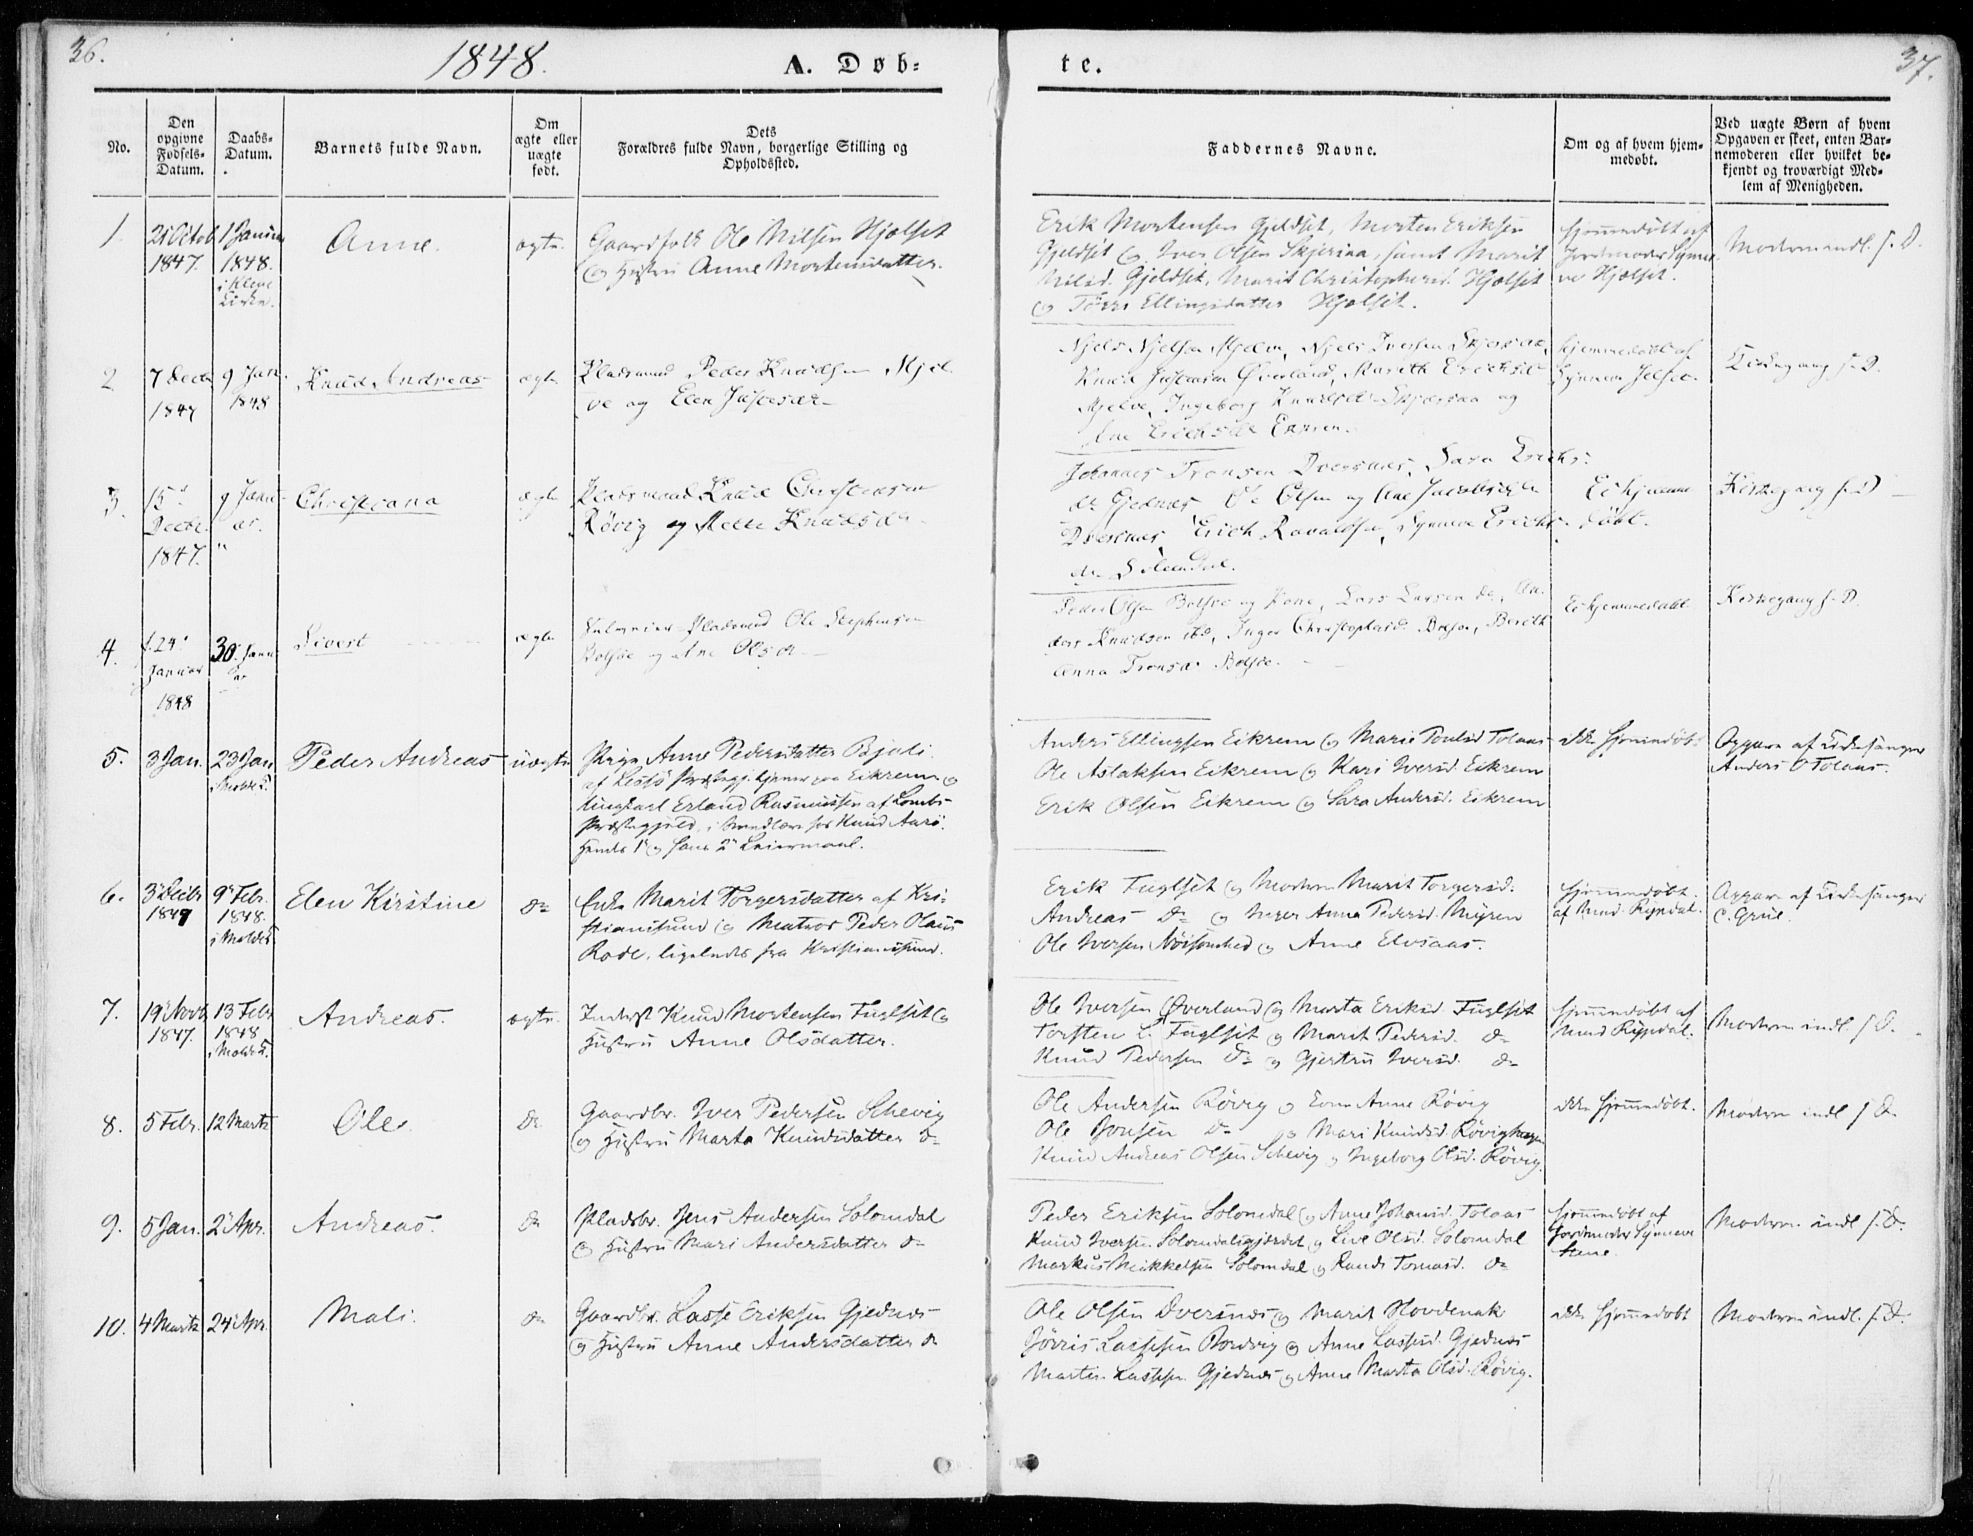 36.
1848.
A. Døb-
te.
37.
No.
Den
opgivne
Fødsels-
Datum.
Daabs-
Datum.
Barnets fulde Navn.
Om
ægte eller
uægte
født.
Dets
Forældres fulde Navn, borgerlige Stilling og
Opholdssted.
Faddernes Navne.
Om og af hvem hjem-
medøbt.
Ved uægte Børn af hvem
Opgaven er skeet, enten Bar-
nemoderen eller hvilket be-
kjendt og troværdigt Med-
lem af Menigheden.
1.
21 Octob
1847.
1 Januar
1848.
i Kleve
Kirke.
Anne.
ægte.
Gaardfolk Ole Nilsen Hjelset
og Hustru Anne Mortensdatter.
Erik Mortensen Gjeldset, Morten Eriksen
Gjeldset og Iver Olsen Skjersaa, samt Marit
Nilsd. Gjeldset, Marit Christophersd. Hjelset
og Ellingsdatter Hjelset.
hjemmedøbt af
Jordmoder Synne-
ve Hjelset.
Moderen indl. s. D.
2
7 Decb
1847
9 Jan.
1848
Knud Andreas
ægte
Pladsmand Peder Knudsen Mjel-
ve og Elen
Njels Njelsen Mjelve, Njels Iversen
Knud Øverland, Marith
Mjelve, Ingeborg Knudsdr Skjersaa og
Ane
hjemmedøbt af
Synneve Jelset.
s. D.
3.
15d
Decbr.
1847.
9 Janu-
ar.
"
Christiana
ægte
Pladsmand Knud Christensen
Røvig og Mette Knudsdr
Johannes Tronsen Dversnes, Sara Erichs-
dr Gjednes, Ole Olsen og Ane
Dversnes, Erich Ravaldsen, Synneve Erichs-
dr Solemdal.
Ei hjemme-
døbt.
Kirkegang s. D
4.
d. 24'
Januar
1848
30. Janu-
ar
Sivert
ægte
Pladsmand Ole Stephensen
Bolsøe og Ane Olsdr
Peder Olsen Bolsøe og Kone, Lars Larsen do, An-
ders Knudsen ibd, Inger Christophersd. Bolsøe, Berith
Anna Tronsdr Bolsøe.
Ei hjemmedøbt
Kirkegang s. D.
5.
3 Jan.
23 Jan
i Molde K.
Peder Andreas
uægte
Pige Anne Pedersdatter Bjøli
af Lesjø Præstegj. tjener paa Eikrem og
Ungkarl Erland Rasmussen af Loms-
Præstegjeld, i for Knud Aarø.
Hendes 1' og hans 2' Leiermaal.
Anders Ellingsen Eikrem og Marie Poulsd Tolaas
Ole Aslaksen Eikrem og Kari Iversd. Eikrem
Erik Olsen Eikrem og Sara Andersd. Eikrem
ikke hjemmedøbt
Opgave af Kirkesanger
Anders O Tolaas.
6.
3' Decbr
1847
9' Febr.
1848.
i Molde K.
Elen Kirstine
do
Enke Marit Torgersdatter af Kri-
stiansund og Matros Peder Olaus
Rode, ligeledes fra Kristiansund.
Erik Fuglset og Moderen Marit Torgersd.
Andreas do og Anna Pedersd. Myren
Ole Iversen Nøisomhed og Anne Elvsaas.
hjemmedøbt
af Mad. Rypdal.
Opgave af Kirkesanger
C. Grüe.
7.
19 Novb
1847.
13 Febr
1848
i Molde K.
Andreas.
ægte.
Inderst Knud Mortensen Fuglset og
Hustru Anne Olsdatter.
Ole Iversen Øverland og Marta Eriksd. Fuglset
Torsten L. Fuglset og Marit Pedersd. do
Knud Pedersen do og Gjertru Iversd. do
hjemmedøbt af
Mad Rypdal.
Moderen indl. s D.
8.
5 Febr.
12 Marts
Ole.
do
Gaardbr. Iver Pedersen Schevig
og Hustru Marta Knudsdatter do
Ole Andersen Røvig og Anne Røvig
Ole Jonsen do og Mari Knudsd. Røvighagen
Knud Andreas Olsen Schevig og Ingeborg Olsd. Røvig.
ikke hjemmedøbt.
Moderen indl s D.
9.
5 Jan.
2' Apr.
Andreas.
do
Pladsbr. Jens Andersen Solomdal
og Hustru Mari Andersdatter do
Peder Eriksen Solomdal og Anne Johansd. Tolaas
Knud Iversen Solomdalsgjerdet og Live Olsd. Solomdal
Markus Mikkelsen Solomdal og Randi Tomasd. do
hjemmedøbt af
Jordemoder Synneve
Moderen indl s. D.
10.
4 Marts
24' Apr.
Mali.
do
Gaardbr. Lasse Eriksen Gjednes
og Hustru Anne Andersdatter do
Ole Olsen Dversnes og Marit Hovdenak
Jørris Lassesen Bordvig og Anne Lassesd. Gjednes
Morten Lassesen Gjednes og Anne Marta Olsd. Røvig.
ikke hjemmedøbt
Moderen indl. s. D.